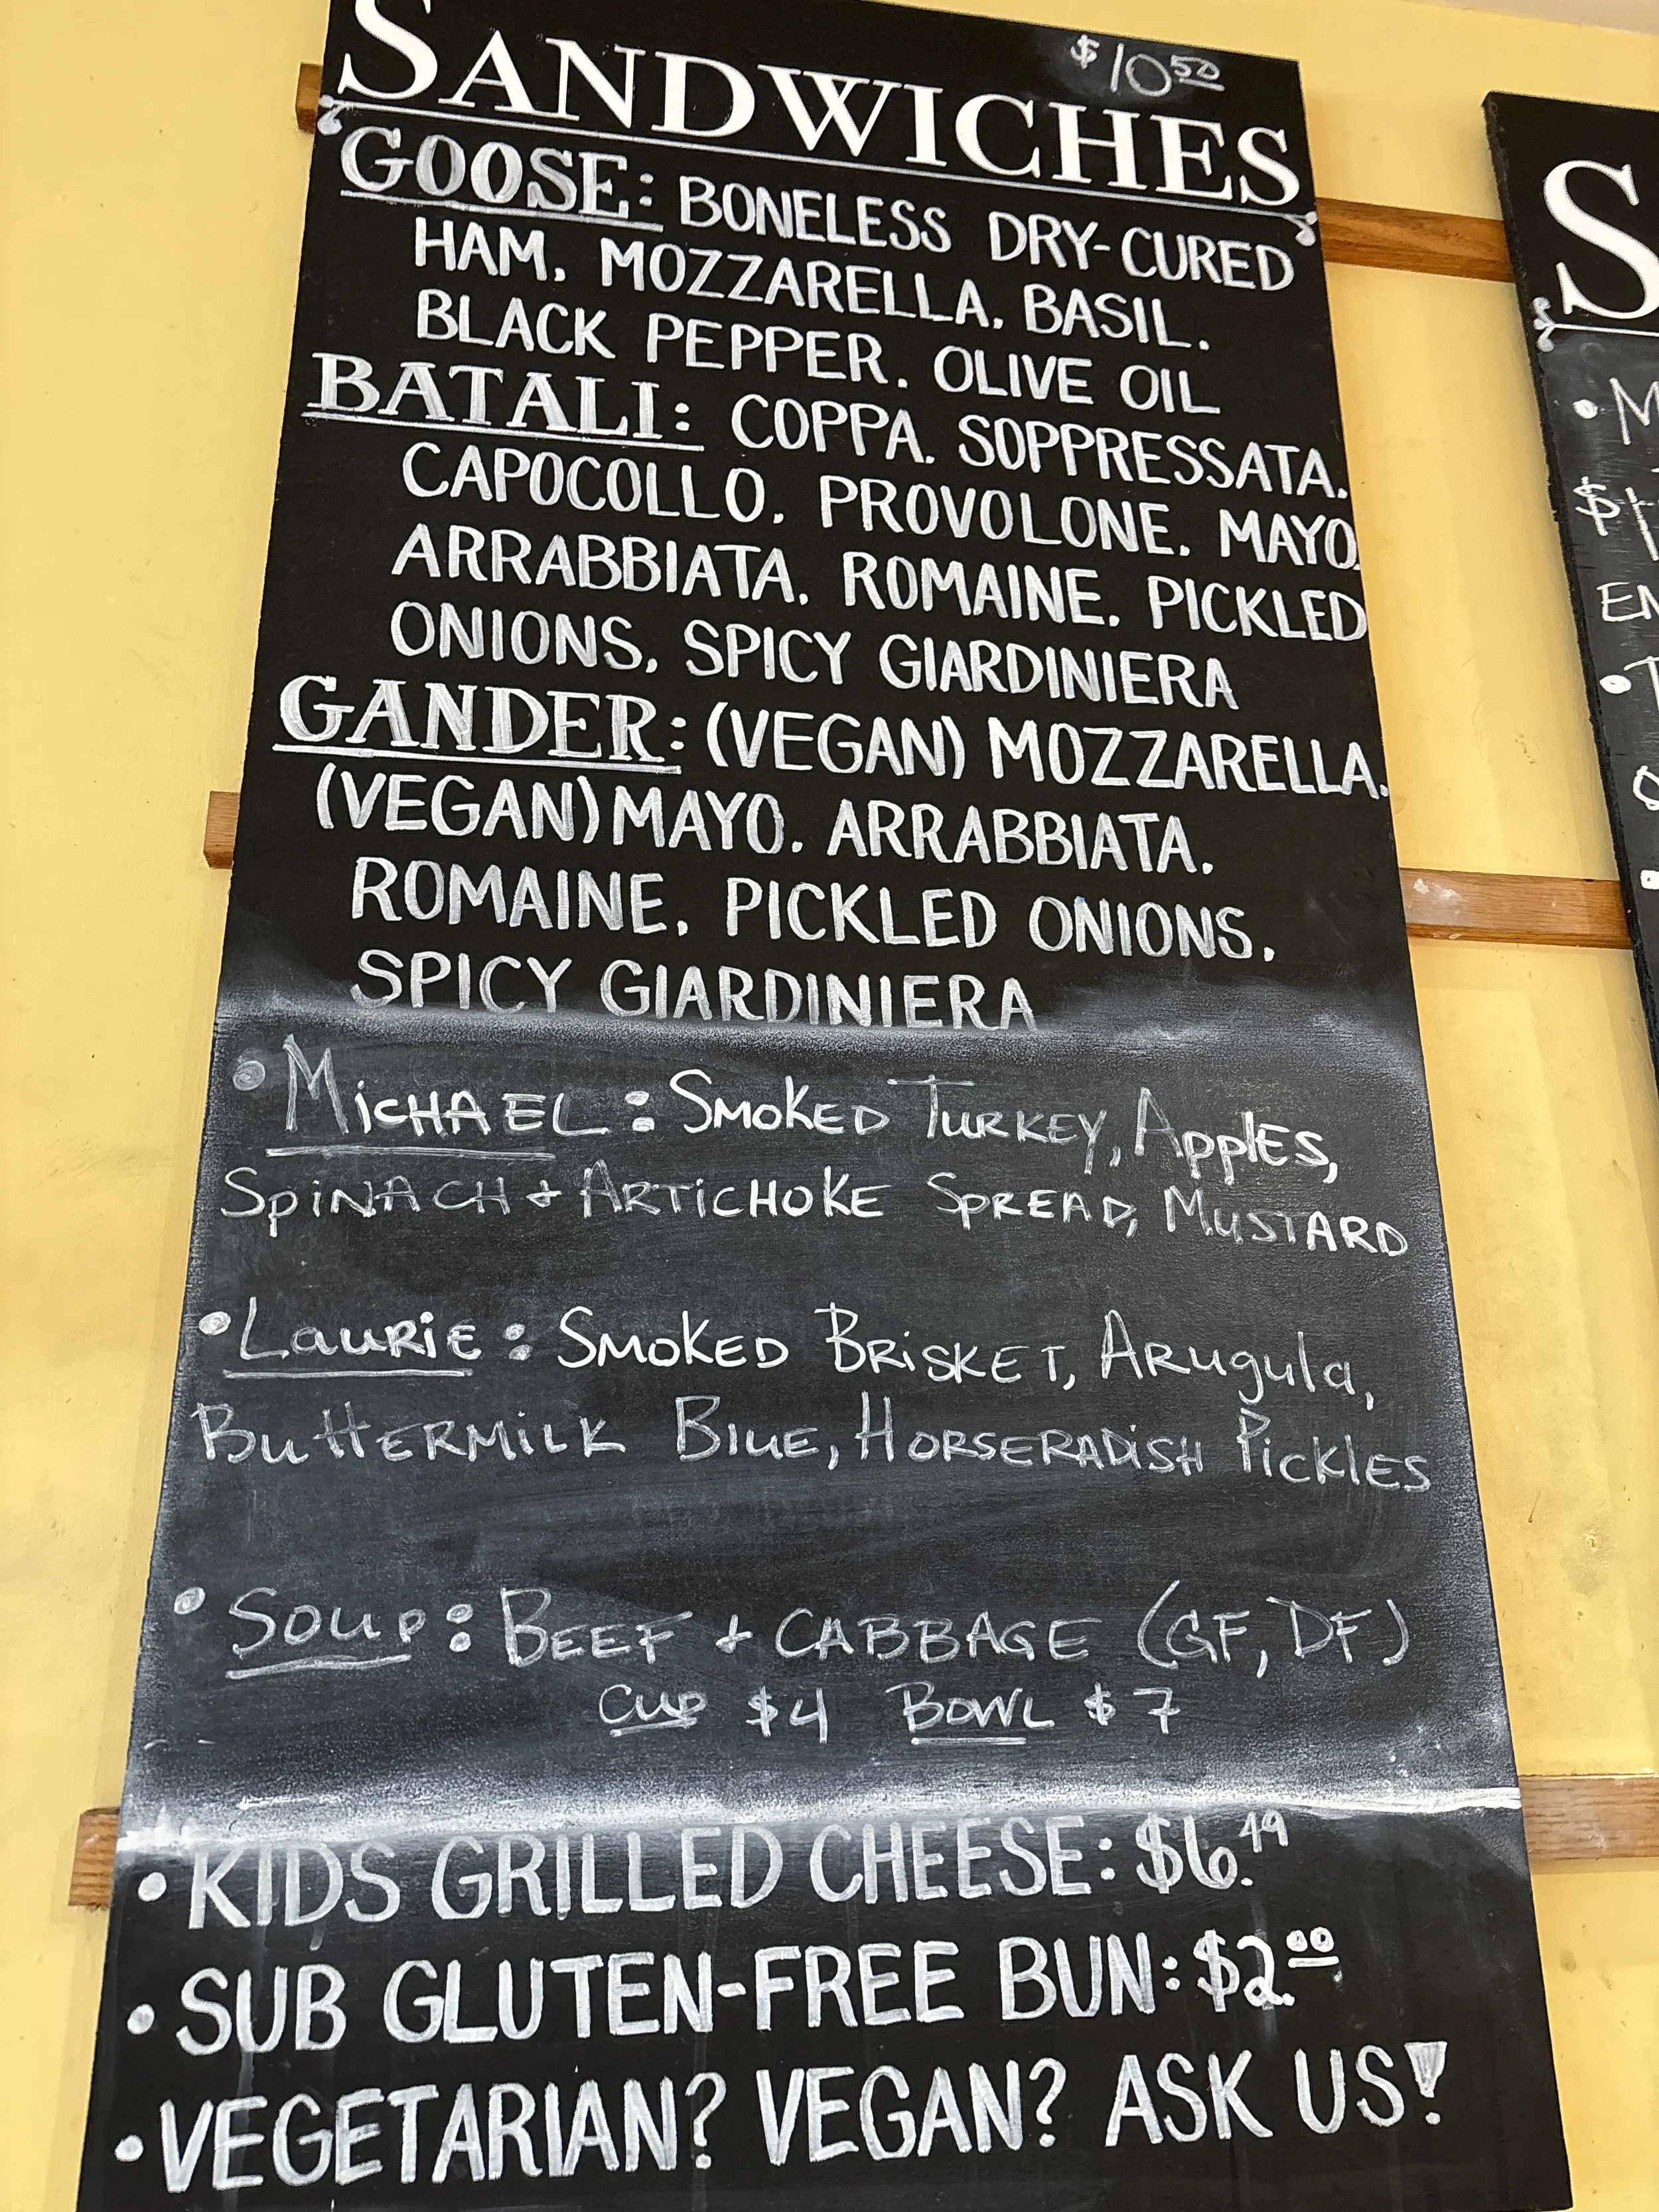 $10.50
SANDWICHES
GOOSE: BONELESS DRY-CURED
HAM. MOZZARELLA. BASIL.
BLACK PEPPER. OLIVE OIL
BATALI: COPPA. SOPPRESSATA.
CAPOCOLLO. PROVOLONE. MAYO.
ARRABBIATA. ROMAINE. PICKLED
ONIONS. SPICY GIARDINIERA
GANDER: (VEGAN) MOZZARELLA.
(VEGAN) MAYO. ARRABBIATA.
ROMAINE. PICKLED ONIONS.
SPICY GIARDINIERA
• MiCHAEL: SMOKED TURKEY, ApplES,
SpiNACH + ARTiCHOKE SPREAD, MUSTARD
• LauRiE: SMOKED BRiSKET, ARugula,
ButtERMiLK BluE, HORSERADiSH PicklES
• Soup: BEEF + CABBAGE (GF, DF)
Cup $4 BOWL $7
• KIDS GRILLED CHEESE: $6.49
• SUB GLUTEN-FREE BUN: $2.00
• VEGETARIAN? VEGAN? ASK US!
S